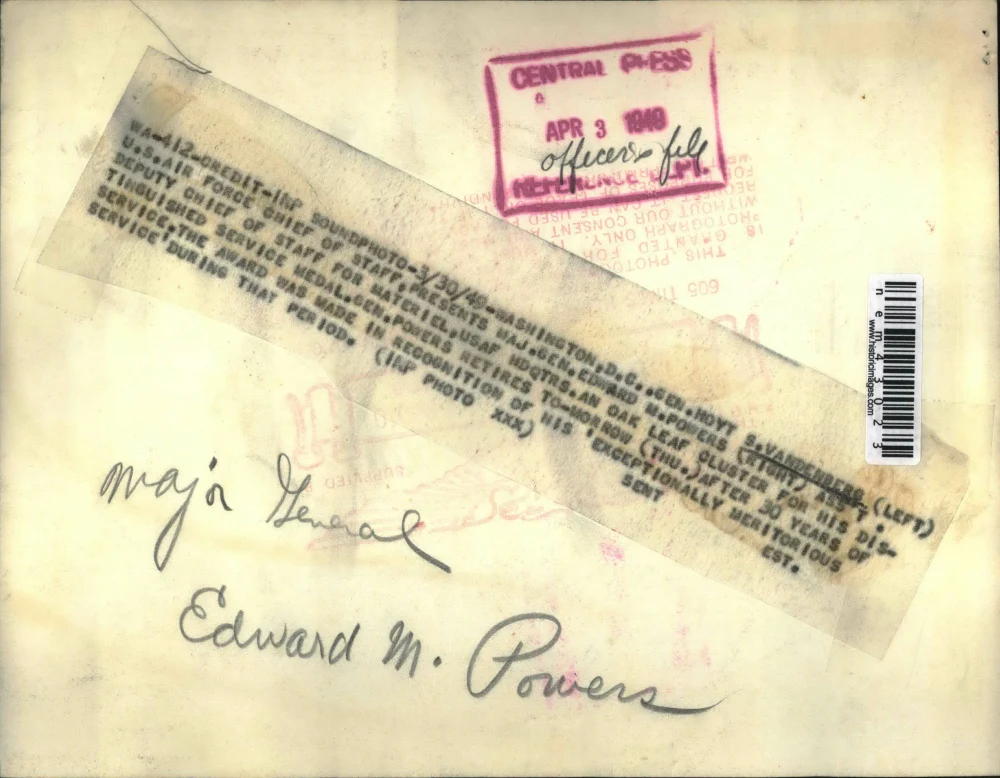 CENTRAL PRESS
APR 3 1949
officers file
REFERENCE DEPT.
WA-412-CREDIT-INP SOUNDPHOTO-3/30/49-WASHINGTON,D.C..GEN.HOYT S.VANDENBERG (LEFT)
U.S.AIR FORCE CHIEF OF STAFF,PRESENTS MAJ.GEN.EDWARD M.POWERS (RIGHT)
DEPUTY CHIEF OF STAFF FOR MATERIEL,USAF HDQTRS.AN OAK LEAF CLUSTER FOR HIS DIS-
TINGUISHED SERVICE MEDAL.GEN.POWERS RETIRES TO-MORROW (THU.)AFTER 30 YEARS OF
SERVICE.THE AWARD WAS MADE IN RECOGNITION OF HIS 'EXCEPTIONALLY MERITORIOUS
SERVICE'DURING THAT PERIOD. (INP PHOTO XXX) SENT EST.
THIS PHOTO
GRANTED FOR
PHOTOGRAPH ONLY.
WITHOUT OUR CONSENT
nem43023
www.historicimages.com
Major General
Edward M. Powers